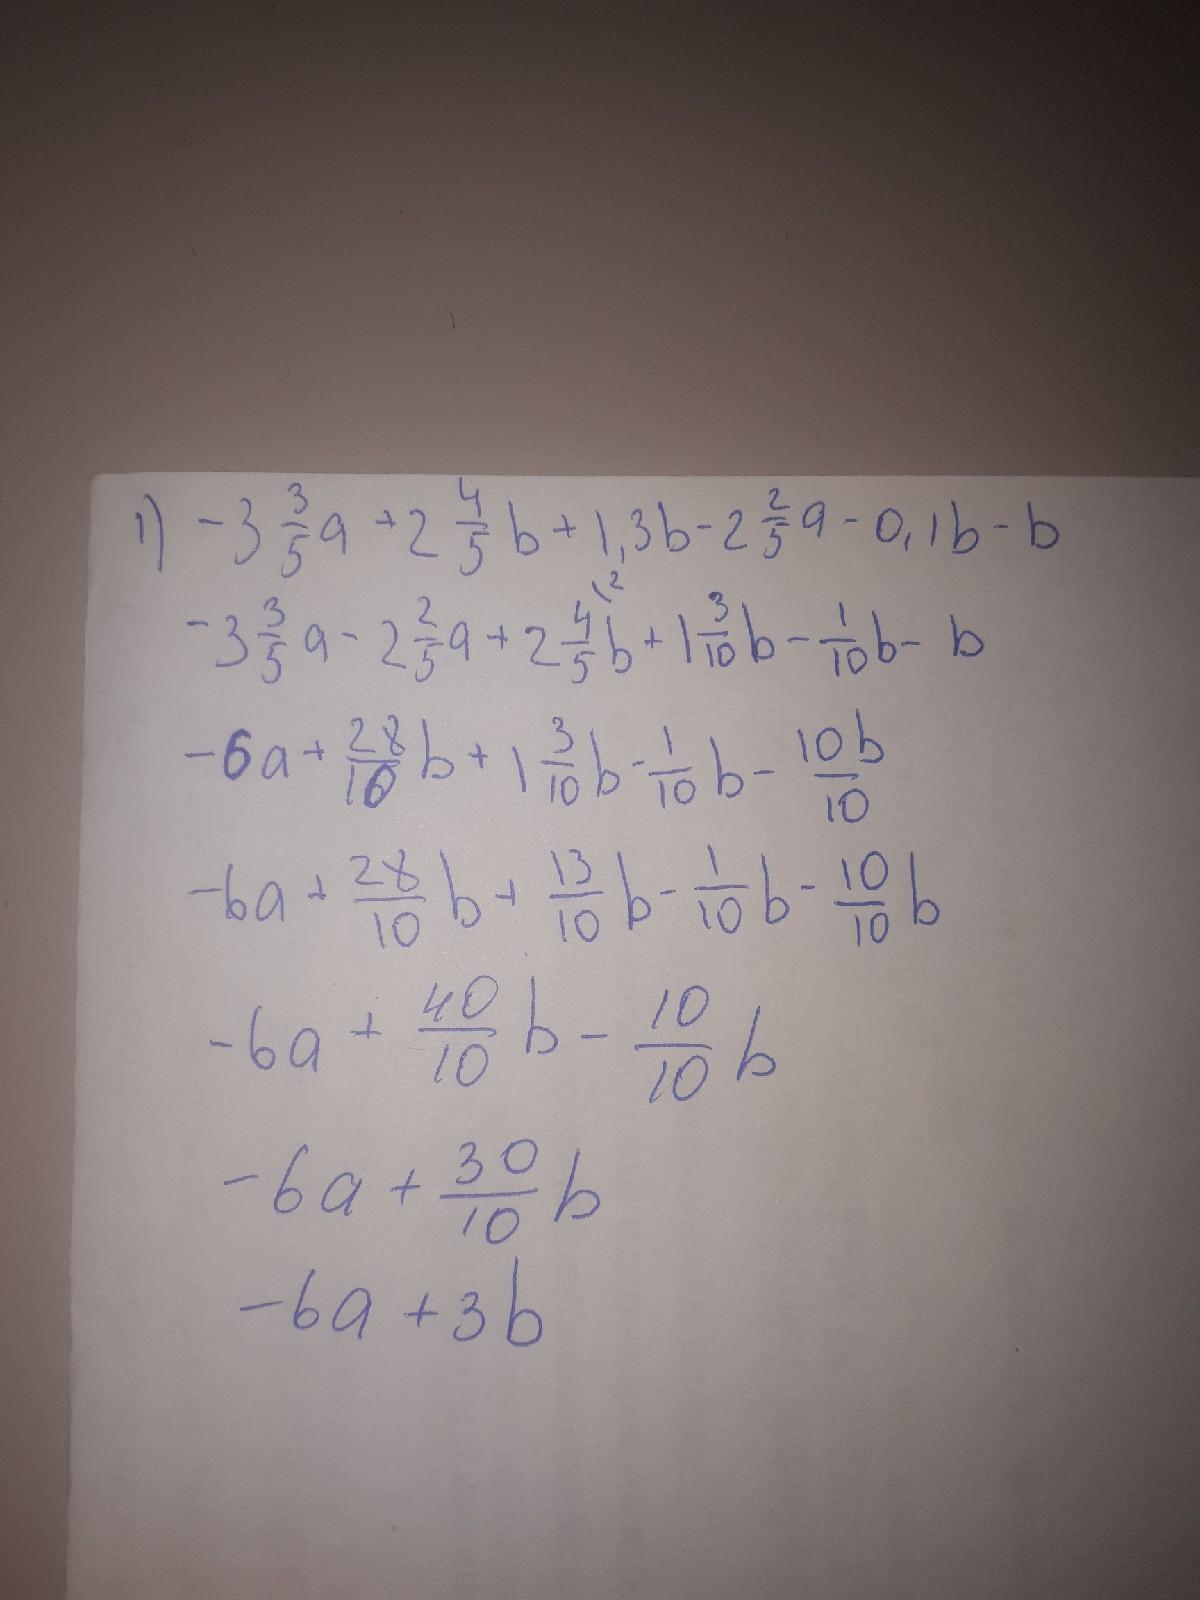 1) -3 3/5 a + 2 4/5 b + 1,3b - 2 2/5 a - 0,1b - b
-3 3/5 a - 2 2/5 a + 2 4/5 \2 b + 1 3/10 b - 1/10 b - b
-6a + 28/10 b + 1 3/10 b - 1/10 b - 10b/10
-6a + 28/10 b + 13/10 b - 1/10 b - 10/10 b
-6a + 40/10 b - 10/10 b
-6a + 30/10 b
-6a + 3b